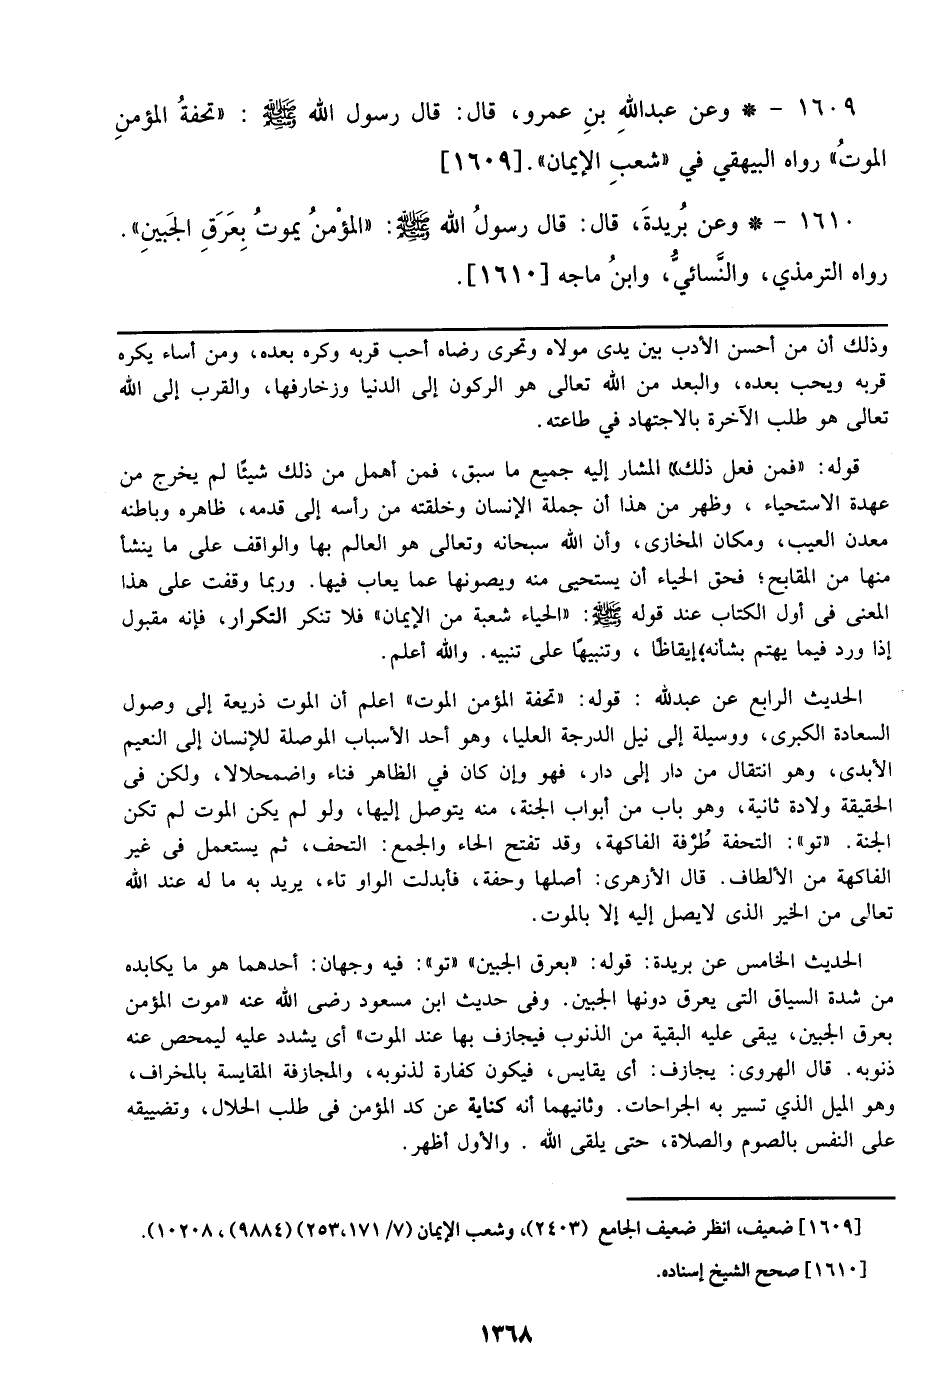 ١٦٠٩ - * وعن عبداللهِ بنِ عمرو، قال: قال رسول الله ﷺ : «تحفةُ المؤمنِ
الموتُ» رواه البيهقي في «شعبِ الإيمان». [١٦٠٩]
١٦١٠ - * وعن بُريدةَ، قال: قال رسولُ الله ﷺ: «المؤْمنُ يموتُ بِعَرَقِ الجَبينِ».
رواه الترمذي، والنَّسائيُّ، وابنُ ماجه [١٦١٠].
وذلك أن من أحسن الأدب بين يدى مولاه وتحرى رضاه أحب قربه وكره بعده، ومن أساء يكره
قربه ويحب بعده، والبعد من الله تعالى هو الركون إلى الدنيا وزخارفها، والقرب إلى الله
تعالى هو طلب الآخرة بالاجتهاد في طاعته.
قوله: «فمن فعل ذلك» المشار إليه جميع ما سبق، فمن أهمل من ذلك شيئًا لم يخرج من
عهدة الاستحياء ، وظهر من هذا أن جملة الإنسان وخلقته من رأسه إلى قدمه، ظاهره وباطنه
معدن العيب، ومكان المخازى، وأن الله سبحانه وتعالى هو العالم بها والواقف على ما ينشأ
منها من المقابح؛ فحق الحياء أن يستحيى منه ويصونها عما يعاب فيها. وربما وقفت على هذا
المعنى فى أول الكتاب عند قوله ﷺ: «الحياء شعبة من الإيمان» فلا تنكر التكرار، فإنه مقبول
إذا ورد فيما يهتم بشأنه؛إيقاظًا ، وتنبيهًا على تنبيه. والله أعلم.
الحديث الرابع عن عبدالله : قوله: «تحفة المؤمن الموت» اعلم أن الموت ذريعة إلى وصول
السعادة الكبرى، ووسيلة إلى نيل الدرجة العليا، وهو أحد الأسباب الموصلة للإنسان إلى النعيم
الأبدى، وهو انتقال من دار إلى دار، فهو وإن كان في الظاهر فناء واضمحلالا، ولكن فى
الحقيقة ولادة ثانية، وهو باب من أبواب الجنة، منه يتوصل إليها، ولو لم يكن الموت لم تكن
الجنة. «تو»: التحفة طُرْفة الفاكهة، وقد تفتح الحاء والجمع: التحف، ثم يستعمل فى غير
الفاكهة من الألطاف. قال الأزهرى: أصلها وحفة، فأبدلت الواو تاء، يريد به ما له عند الله
تعالى من الخير الذى لايصل إليه إلا بالموت.
الحديث الخامس عن بريدة: قوله: «بعرق الجبين» «تو»: فيه وجهان: أحدهما هو ما يكابده
من شدة السياق التى يعرق دونها الجبين. وفى حديث ابن مسعود رضى الله عنه «موت المؤمن
بعرق الجبين، يبقى عليه البقية من الذنوب فيجازف بها عند الموت» أى يشدد عليه ليمحص عنه
ذنوبه. قال الهروى: يجازف: أى يقايس، فيكون كفارة لذنوبه، والمجازفة المقايسة بالمخراف،
وهو الميل الذي تسير به الجراحات. وثانيهما أنه كناية عن كد المؤمن فى طلب الحلال، وتضييقه
على النفس بالصوم والصلاة، حتى يلقى الله . والأول أظهر.
[١٦٠٩] ضعيف، انظر ضعيف الجامع (٢٤٠٣)، وشعب الإيمان (٧/ ٢٥٣،١٧١) (٩٨٨٤) ، ١٠٢٠٨).
[١٦١٠] صحح الشيخ إسناده.
١٣٦٨